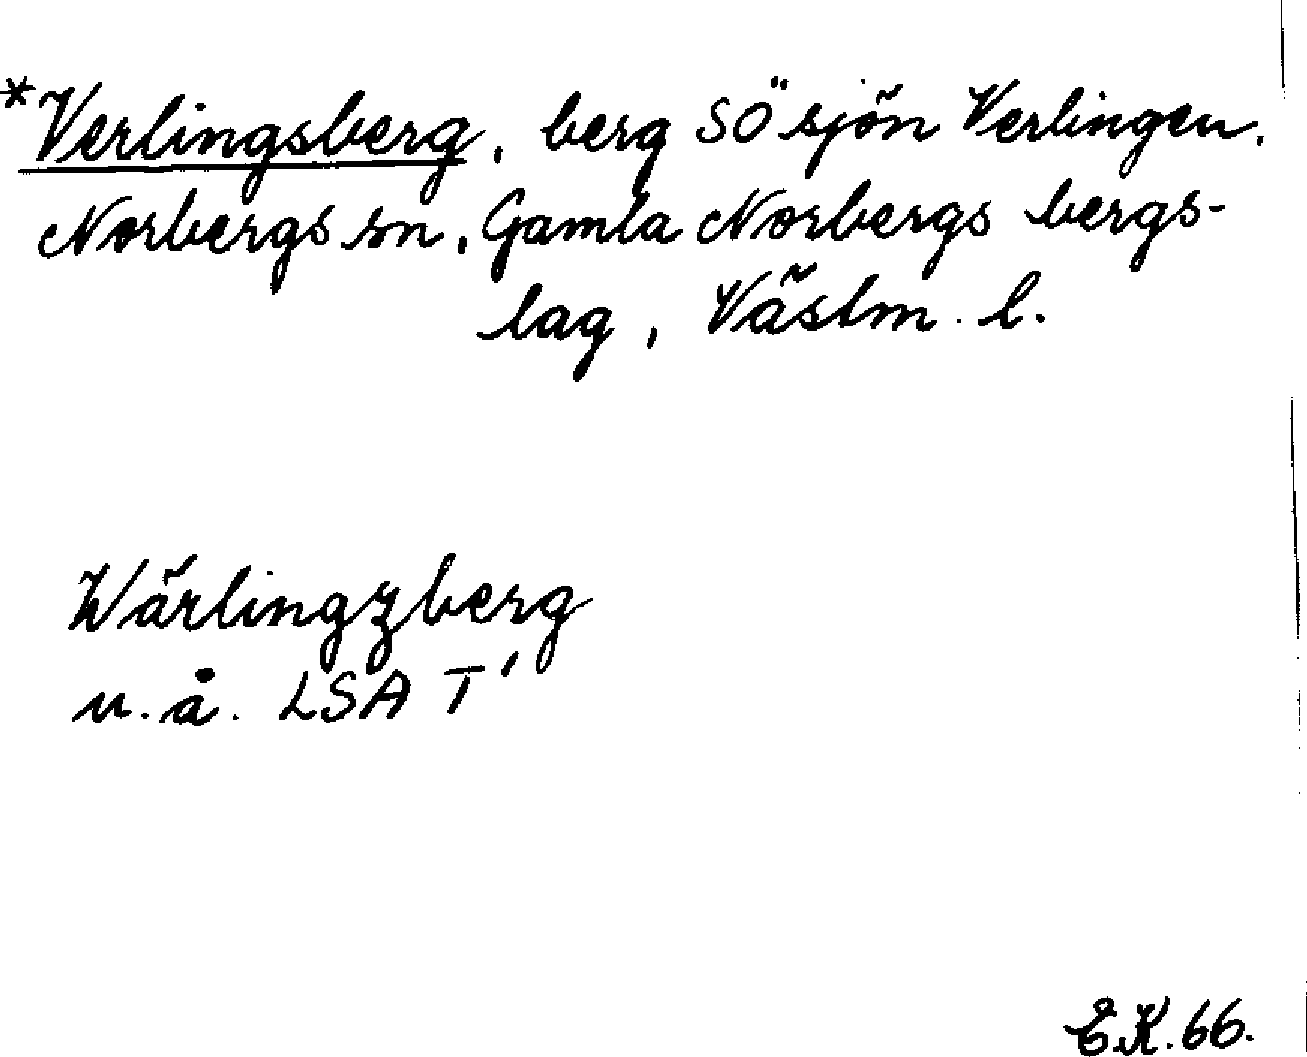 *Verlingsberg, berg SÖ sjön Verlingen,
Norbergs sn, Gamla Norbergs bergs-
lag, Västm. l.
Wärlingzberg
u.å. LSA T'
E.K. 66.